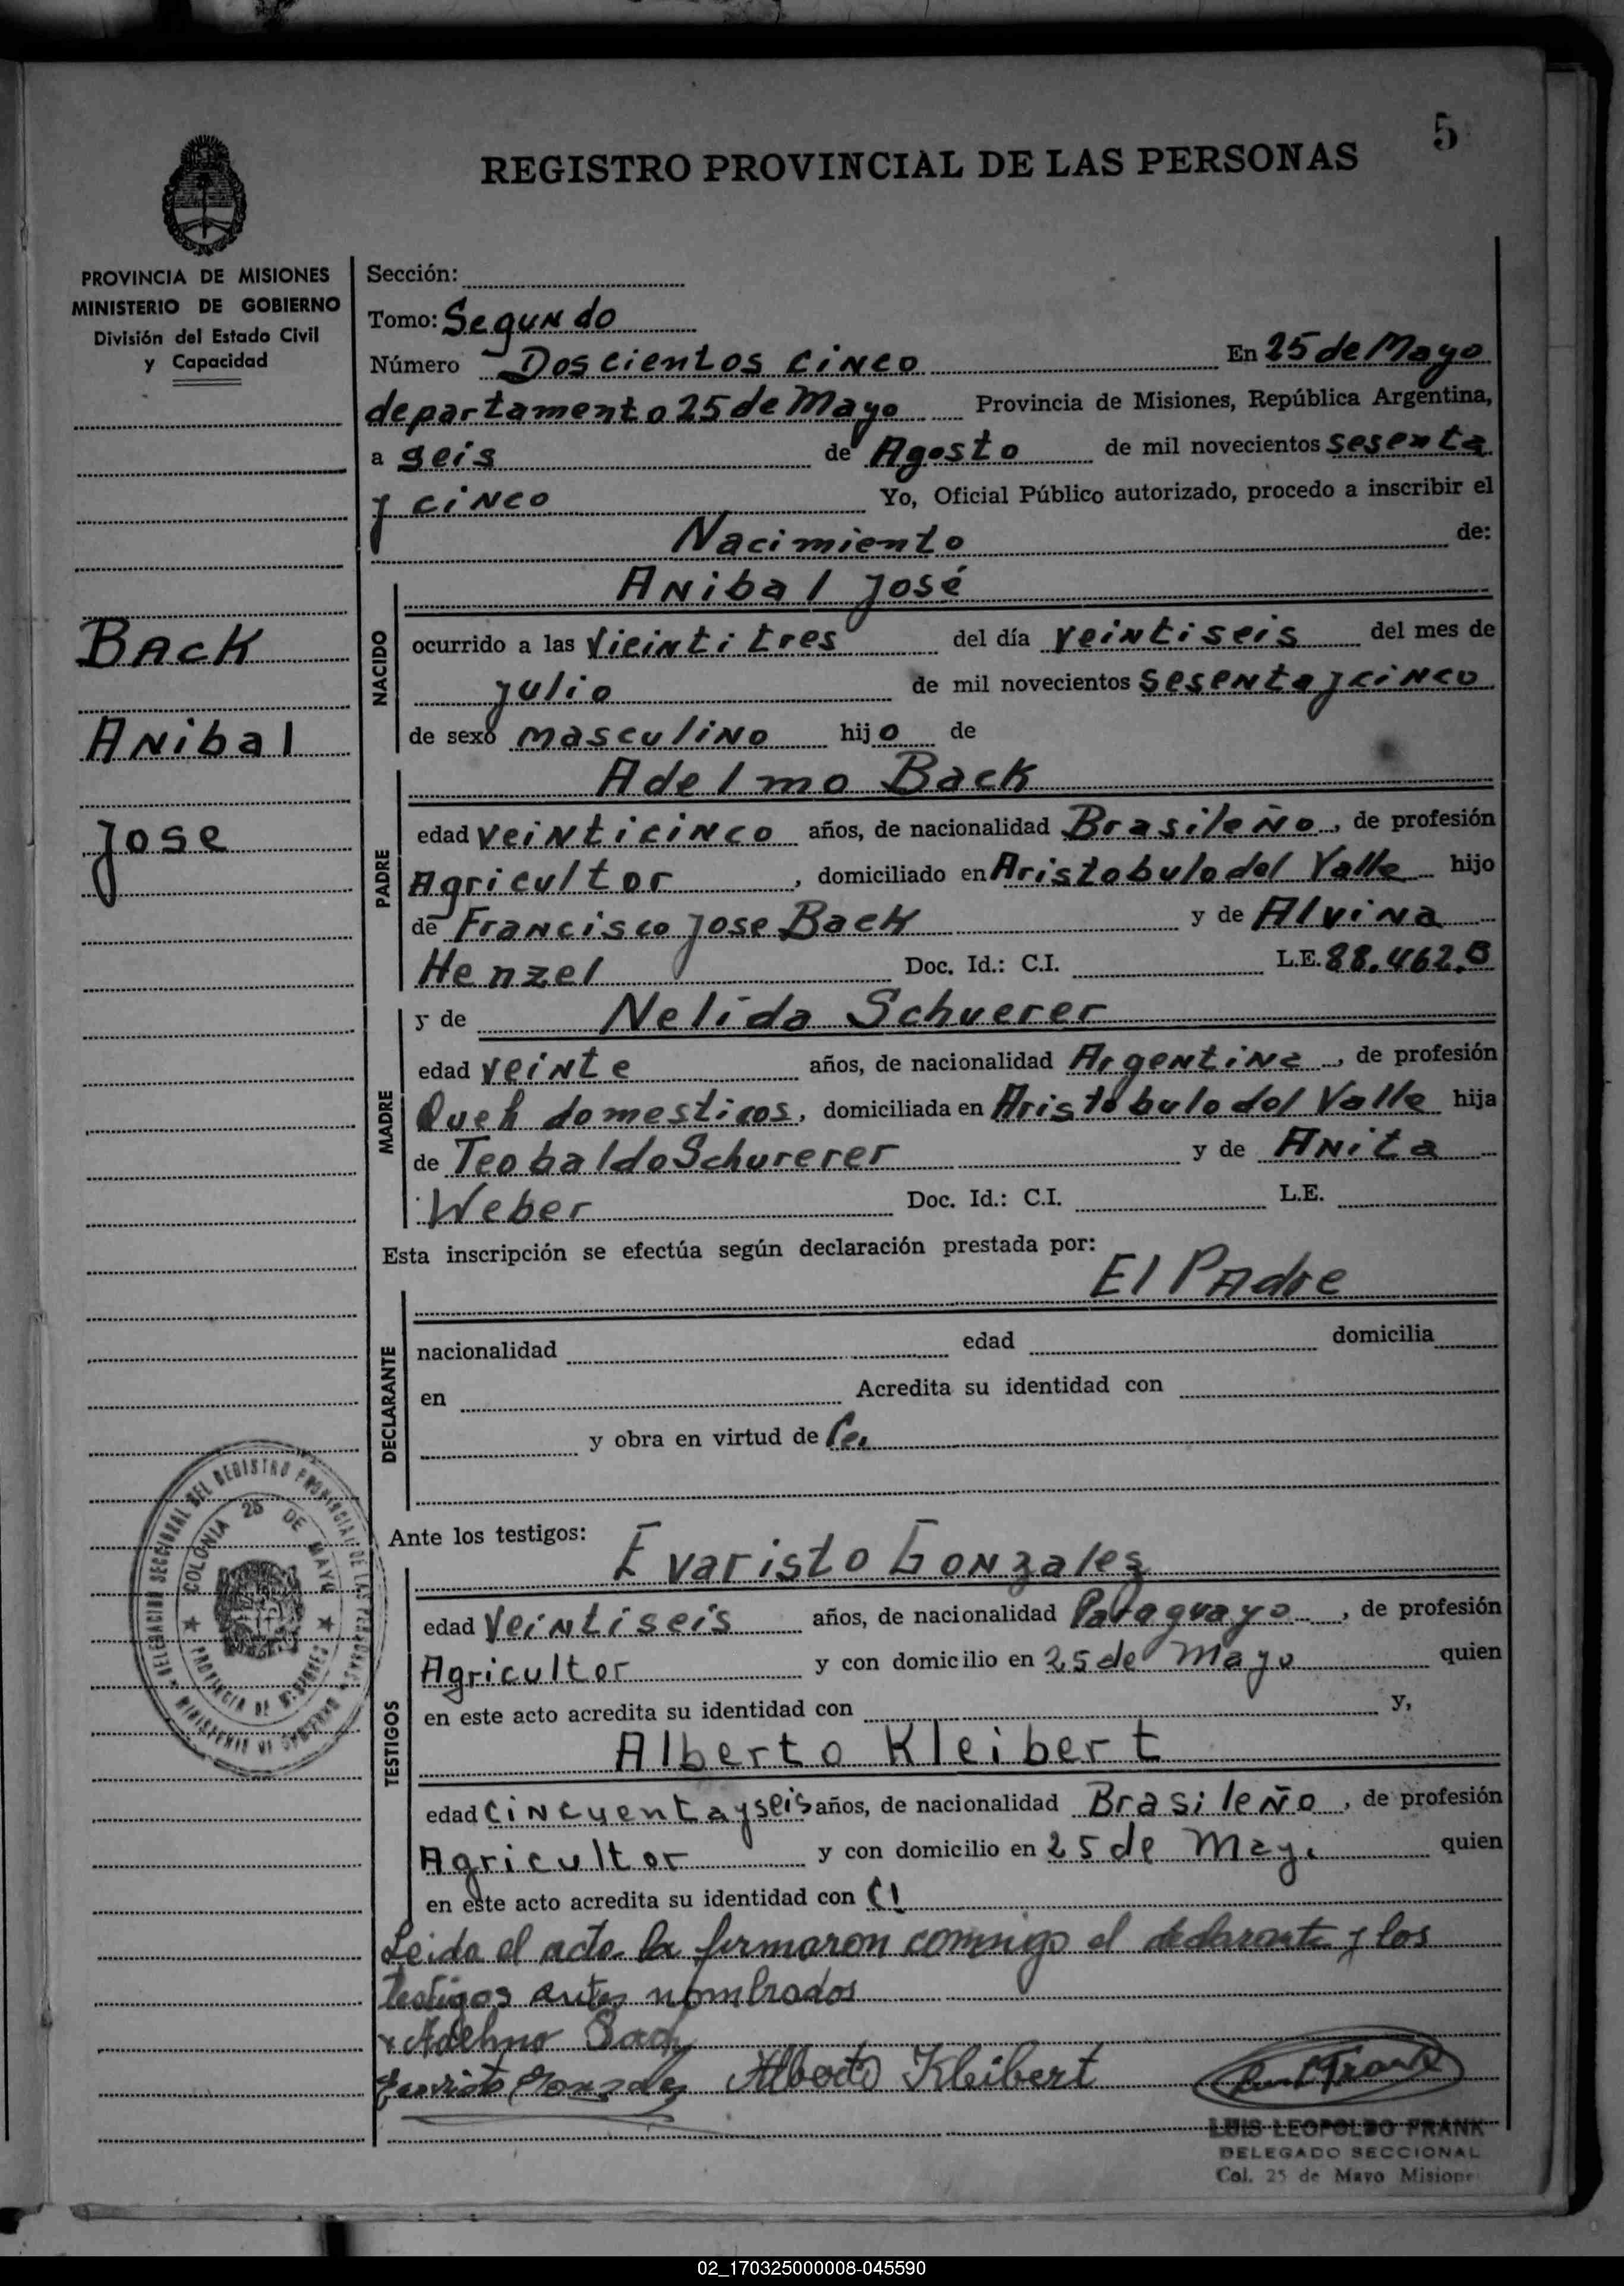 5
REGISTRO PROVINCIAL DE LAS PERSONAS
PROVINCIA DE MISIONES
MINISTERIO DE GOBIERNO
División del Estado Civil
y Capacidad
Back
Anibal
Jose
Sección:
Tomo: Segundo
Número Doscientos cinco En 25 de Mayo
departamento 25 de Mayo Provincia de Misiones, República Argentina,
a seis de Agosto de mil novecientos sesenta
y cinco Yo, Oficial Público autorizado, procedo a inscribir el
Nacimiento de:
NACIDO
Anibal José
ocurrido a las Vieintitres del día veintiseis del mes de
julio de mil novecientos sesenta y cinco
de sexo masculino hijo de
PADRE
Adelmo Back
edad veinticinco años, de nacionalidad Brasileño, de profesión
Agricultor, domiciliado en Aristobulo del Valle hijo
de Francisco Jose Back y de Alvina
Henzel Doc. Id.: C.I. L.E. 88.462.
MADRE
y de Nelida Schuerer
edad veinte años, de nacionalidad Argentina, de profesión
Queh domesticos, domiciliada en Aristobulo del Valle hija
de Teobaldo Schurerer y de Anita
Weber Doc. Id.: C.I. L.E.
Esta inscripción se efectúa según declaración prestada por:
El Padre
DECLARANTE
nacionalidad edad domicilia
en Acredita su identidad con
y obra en virtud de
Ante los testigos:
TESTIGOS
Evaristo Gonzales
edad Veintiseis años, de nacionalidad Paraguayo, de profesión
Agricultor y con domicilio en 25 de Mayo quien
en este acto acredita su identidad con y,
Alberto Kleibert
edad cincuenta y seis años, de nacionalidad Brasileño, de profesión
Agricultor y con domicilio en 25 de May. quien
en este acto acredita su identidad con CI
Leida el acta la firmaron comnigo el declarante y los
testigos antes nombrados
x Adelmo Back
Evaristo Gonzales Alberto Kleibert
LUIS LEOPOLDO FRANK
DELEGADO SECCIONAL
Col. 25 de Mayo Misione
DELEGACION SECCIONAL DEL REGISTRO PROVINCIAL DE LAS PERSONAS
MINISTERIO DE GOBIERNO
COLONIA 25 DE MAYO
PROVINCIA DE MISIONES
02_170325000008-045590